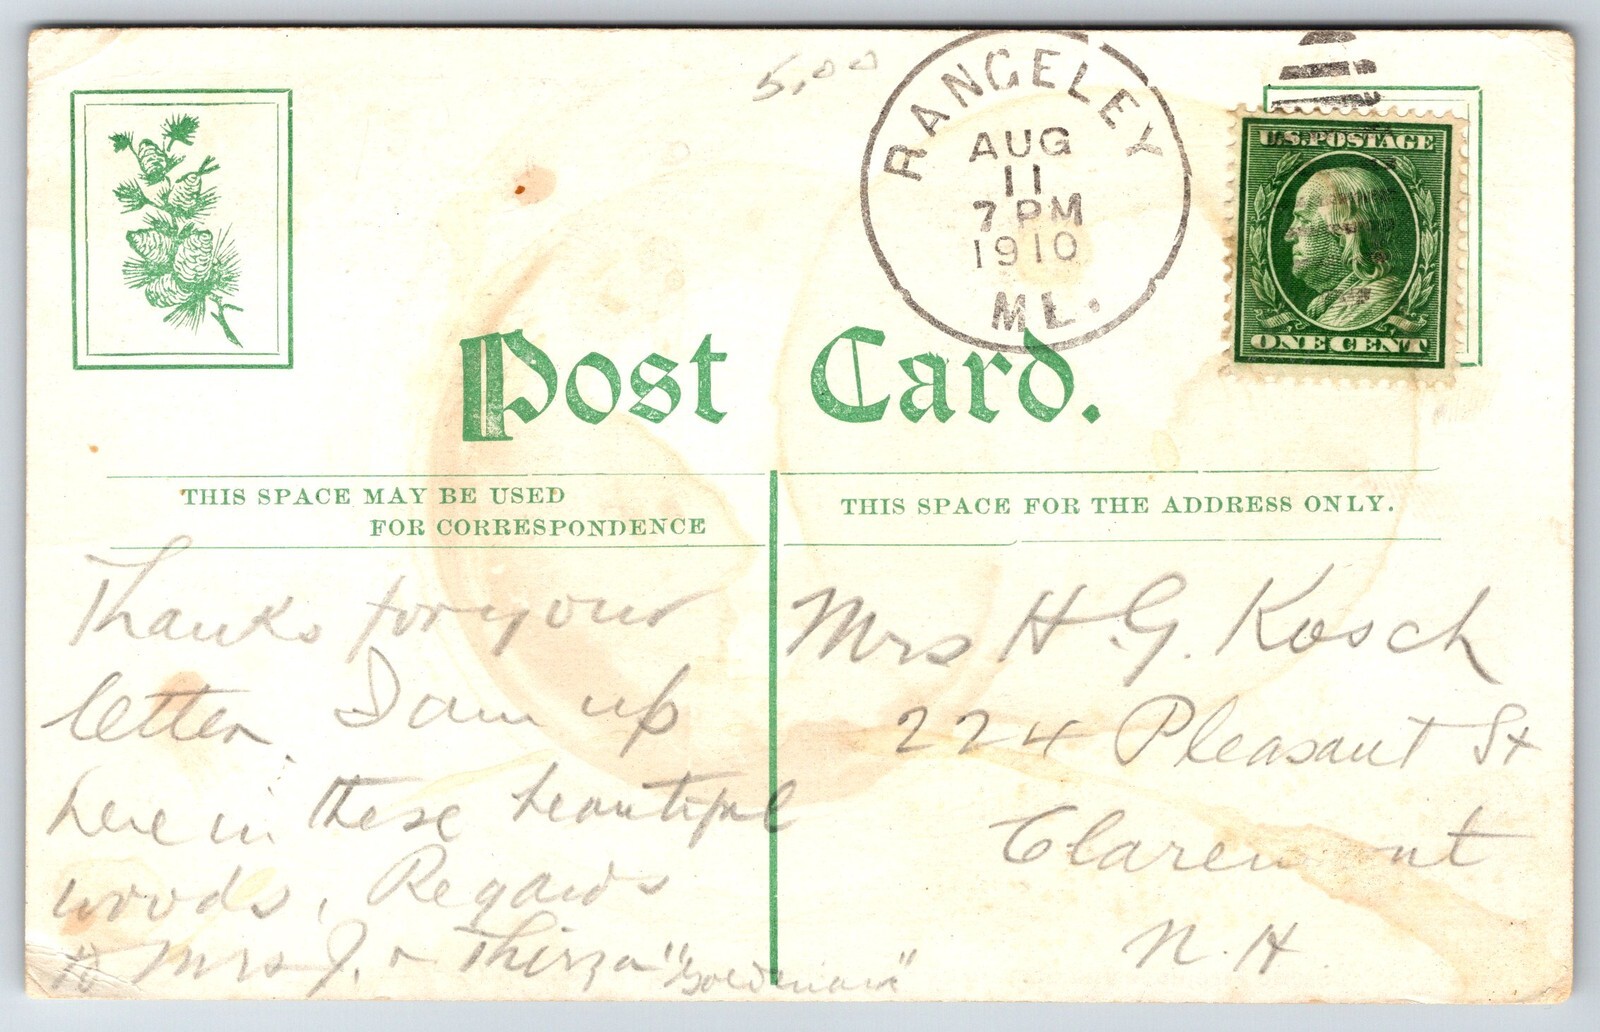 5.00
RANGELEY
AUG
11
7 PM
1910
ME.
U.S. POSTAGE
ONE CENT
Post Card.
THIS SPACE MAY BE USED
FOR CORRESPONDENCE
THIS SPACE FOR THE ADDRESS ONLY.
Thanks for your
letter. I am up
here in these beautiful
woods. Regards
to Mrs J. & Thirza "Goodman"
Mrs H. G. Kosch
224 Pleasant St
Claremont
N. H.